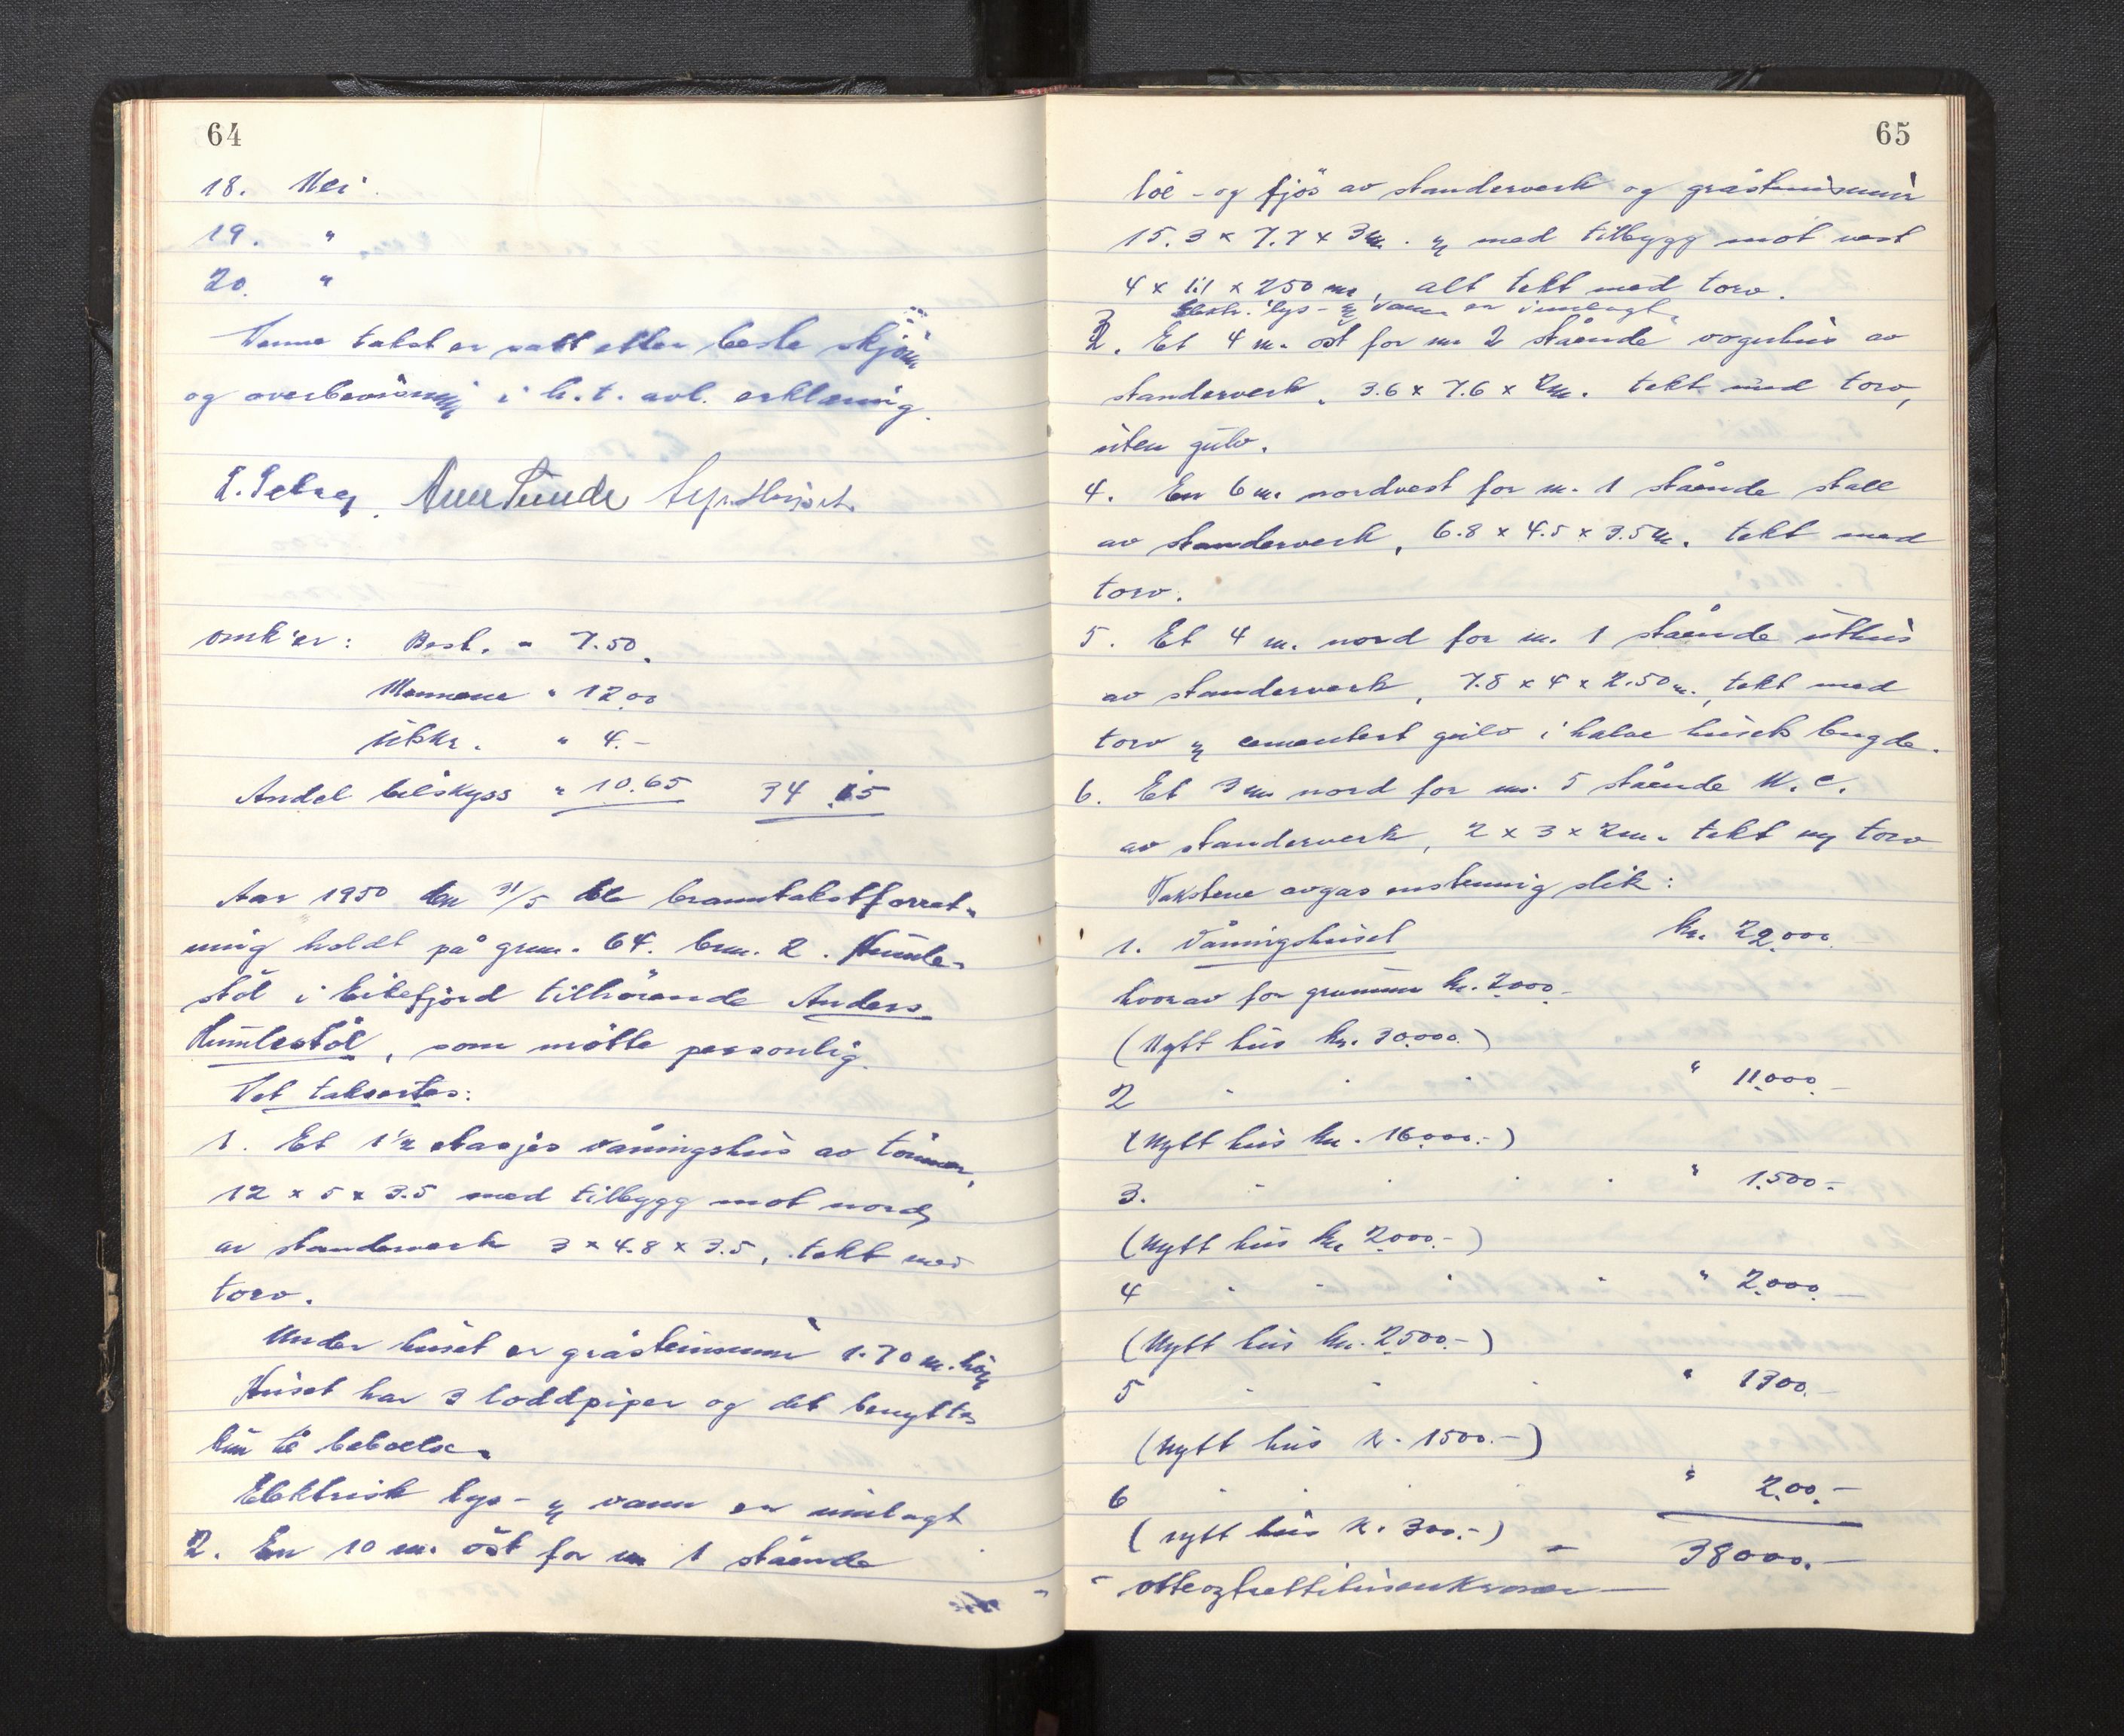 64
18. Nei.
19. "
20. "
Denne takst er satt etter beste skjönn
og overbevisning i h.t. avl. erklæring.
Arne Sunde
omk'er: Best. - 7.50.
Mennene " 12.00
Utskr. " 4.-
Andel bilskyss " 10.65 34.15
Aar 1950 den 31/5 ble branntakstforret-
ning holdt på grnr. 64. brnr. 2. Humle-
støl i Eikefjord tilhörande Anders
Humlestöl, som mötte personlig.
Det taksertes:
1. Et 1½ etasjes våningshus av tömmer,
12 x 5 x 3.5 med tilbygg mot nord
av standerverk 3 x 4.8 x 3.5, tekt med
torv.
Under huset er gråsteinsmur 1.70 m. höy
Huset har 3 loddpiper og det benyttes
kun til beboelse.
Elektrisk lys- og vann er innlagt
2. En 10 m. öst for nr 1 stående
65
löe - og fjös av standerverk og gråsteinsmur
15.3 x 7.7 x 3 m. og med tilbygg mot vest
4 x 11 x 250 m, alt tekt med torv.
Elektr. lys- og vann er innlagt.
3. Et 4 m. öst for nr 2 stående vognhus av
standerverk, 3.6 x 7.6 x 2 m. tekt med torv,
uten gulv.
4. En 6 m. nordvest for nr. 1 stående stall
av standerverk, 6.8 x 4.5 x 3.5 m. tekt med
torv.
5. Et 4 m. nord for nr. 1 stående uthus
av standerverk, 7.8 x 4 x 2.50 m. tekt med
torv og cementert gulv i halve husets lengde.
6. Et 3 m nord for nr. 5 stående W.C.
av standerverk, 2 x 3 x 2 m. tekt m torv
Takstene avgas enstemmig slik:
1. Våningshuset kr. 22.000.-
hvorav for grunnmur kr. 2.000.-
(Nytt hus kr. 30.000.)
2 " " " " 11.000.-
(Nytt hus kr. 16.000.-)
3. " " " " " 1.500.-
(Nytt hus kr 2000.-)
4 " " " " " 2.000.-
(Nytt hus kr. 2500.-)
5 " " " " 1300.-
(Nytt hus kr. 1500.-)
6 " " " " " 200.-
(nytt hus kr. 300.-) - 38000.-
- Åtteogtrettitusenkroner -